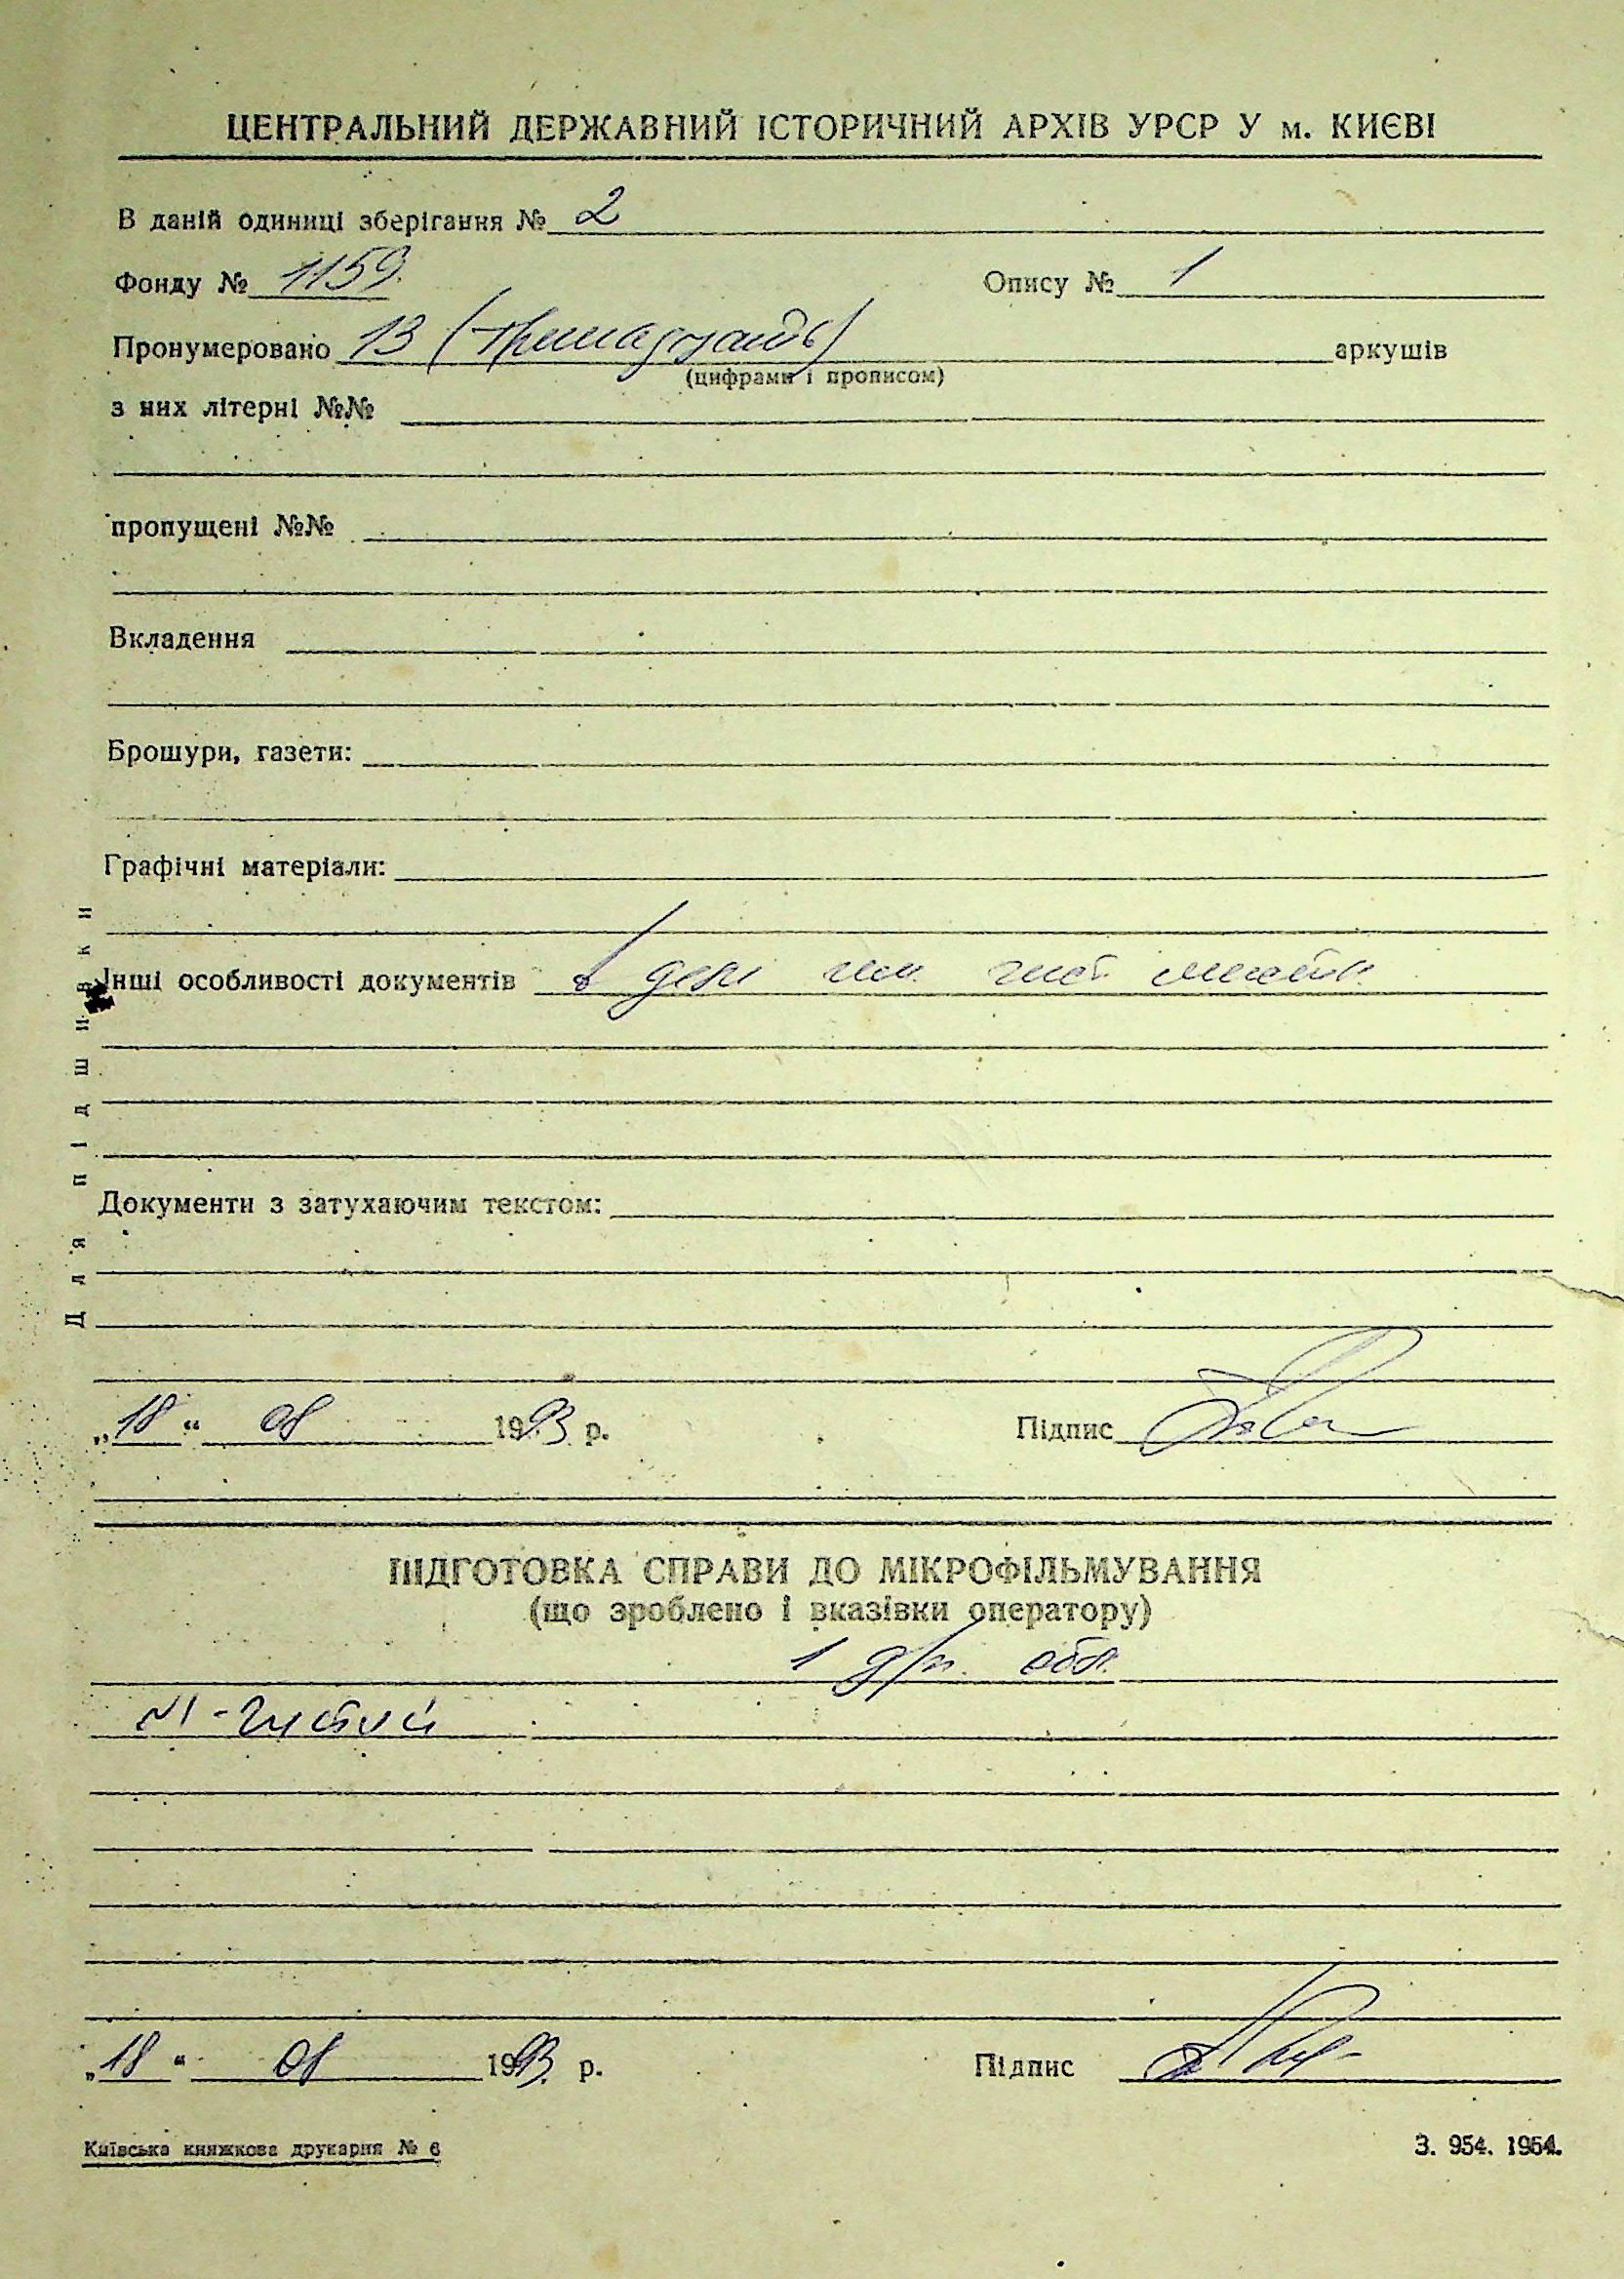 ЦЕНТРАЛЬНИЙ ДЕРЖАВНИЙ ІСТОРИЧНИЙ АРХІВ УРСР У м. КИЄВІ
В даній одиниці зберігання № 2
Фонду № 1159 Опису № 1
Пронумеровано 13 (тринадцять) аркушів
(цифрами і прописом)
з них літерні №№
пропущені №№
Вкладення
Брошури, газети:
Графічні матеріали:
Інші особливості документів в делі
Документи з затухаючим текстом:
Для підшивки
„18“ 08 1993 р. Підпис
ПІДГОТОВКА СПРАВИ ДО МІКРОФІЛЬМУВАННЯ
(що зроблено і вказівки оператору)
1 обл.
„18“ 08 1993 р. Підпис
Київська книжкова друкарня № 6 З. 954. 1964.